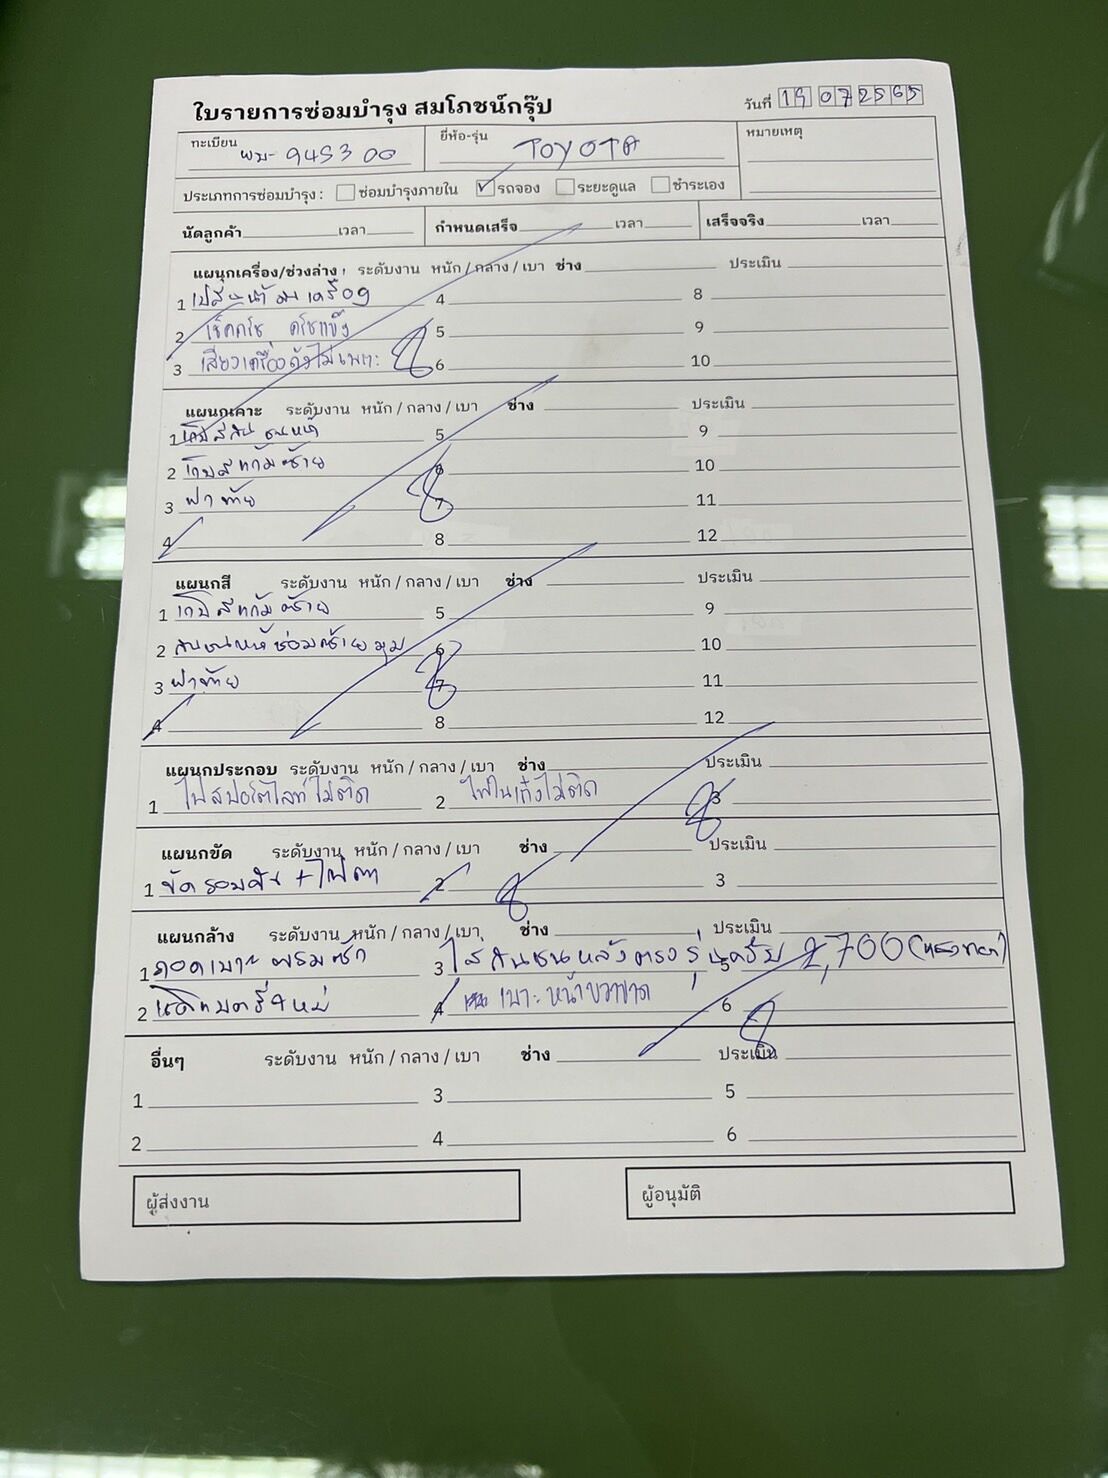 ใบรายการซ่อมบำรุง สมโภชน์กรุ๊ป
วันที่ 19 07 2565
ทะเบียน 9453 กท
ยี่ห้อ-รุ่น TOYOTA
หมายเหตุ
ประเภทการซ่อมบำรุง : ซ่อมบำรุงภายใน รถจอง ระยะดูแล ชำระเอง
นัดลูกค้า เวลา กำหนดเสร็จ เวลา เสร็จจริง เวลา
แผนกเครื่อง/ช่วงล่าง ระดับงาน หนัก / กลาง / เบา ช่าง ประเมิน
1 เครื่อง 4 8
2 เช็คโช๊ค โช๊คแข็ง 5 9
3 เสียงเครื่องดังไม่เพราะ 6 10
แผนกเคาะ ระดับงาน หนัก / กลาง / เบา ช่าง ประเมิน
1 กันชนหน้า 5 9
2 เก็บสีแก้มซ้าย 6 10
3 ฝาท้าย 7 11
4 8 12
แผนกสี ระดับงาน หนัก / กลาง / เบา ช่าง ประเมิน
1 เก็บสีแก้มซ้าย 5 9
2 กันชนหน้าซ่อมซ้ายมุม 6 10
3 ฝาท้าย 7 11
4 8 12
แผนกประกอบ ระดับงาน หนัก / กลาง / เบา ช่าง ประเมิน
1 ไฟสปอร์ตไลท์ไม่ติด 2 ไฟในเก๋งไม่ติด 3
แผนกขัด ระดับงาน หนัก / กลาง / เบา ช่าง ประเมิน
1 ขัดรอบคัน + ไฟตา 2 3
แผนกล้าง ระดับงาน หนัก / กลาง / เบา ช่าง ประเมิน
1 ถอดเบาะ พรมซัก 3 ใส่กันชนหลังตรงรุ่น 5 2,700
2 แบตใหม่ 4 เบาะหน้าขวาขาด 6
อื่นๆ ระดับงาน หนัก / กลาง / เบา ช่าง ประเมิน
1 3 5
2 4 6
ผู้ส่งงาน
ผู้อนุมัติ